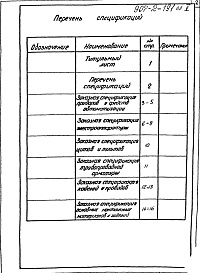 907-2-191
Перечень спецификаций
Обозначение
Наименование
№№ стр.
Примечание
Титульный
лист
1
Перечень
спецификаций
2
Заказная спецификация
приборов и средств
автоматизации
3-5
Заказная спецификация
электроаппаратуры
6-9
Заказная спецификация
щитов и пультов
10
Заказная спецификация
трубопроводной
арматуры
11
Заказная спецификация
кабелей и проводов
12-13
Заказная спецификация
основных монтажных
материалов и изделий
14-16